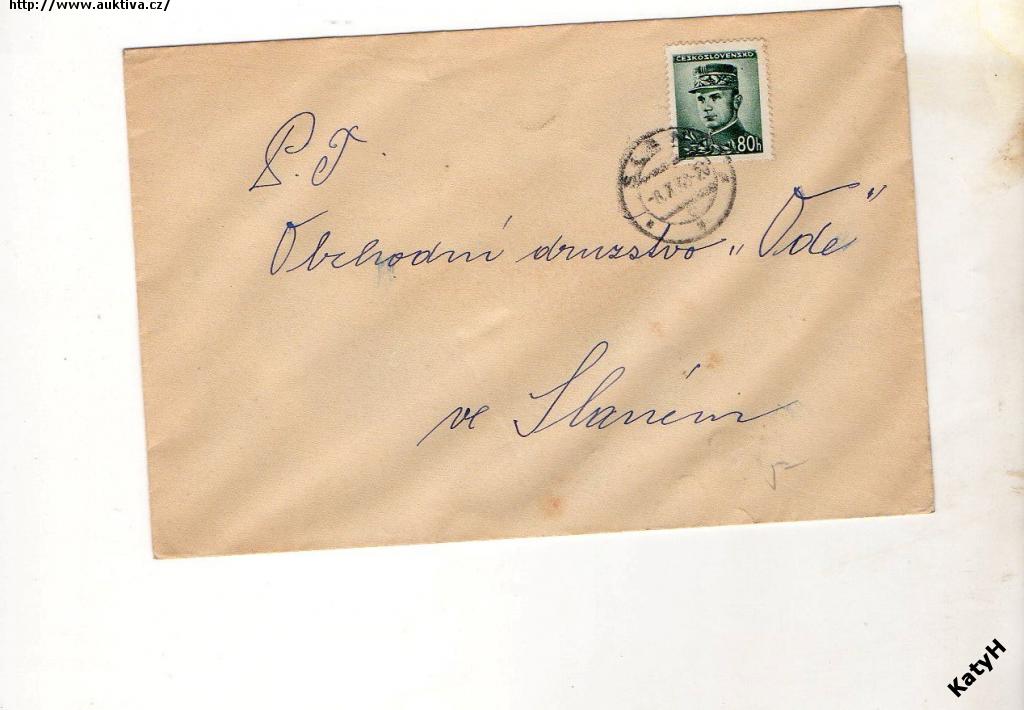 http://www.auktiva.cz/
ČESKOSLOVENSKO
80h
P. T.
Obchodní druzstvo „Ode“
ve Slaném
KatyH